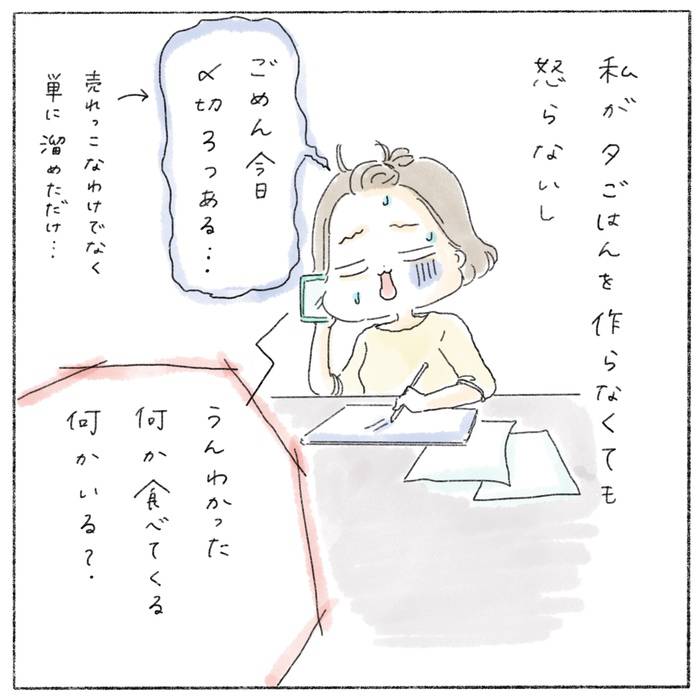 私が夕ごはんを作らなくても
怒らないし
ごめん今日
〆切3つある…
売れっこなわけでなく
単に溜めただけ…
うんわかった
何か食べてくる
何かいる？